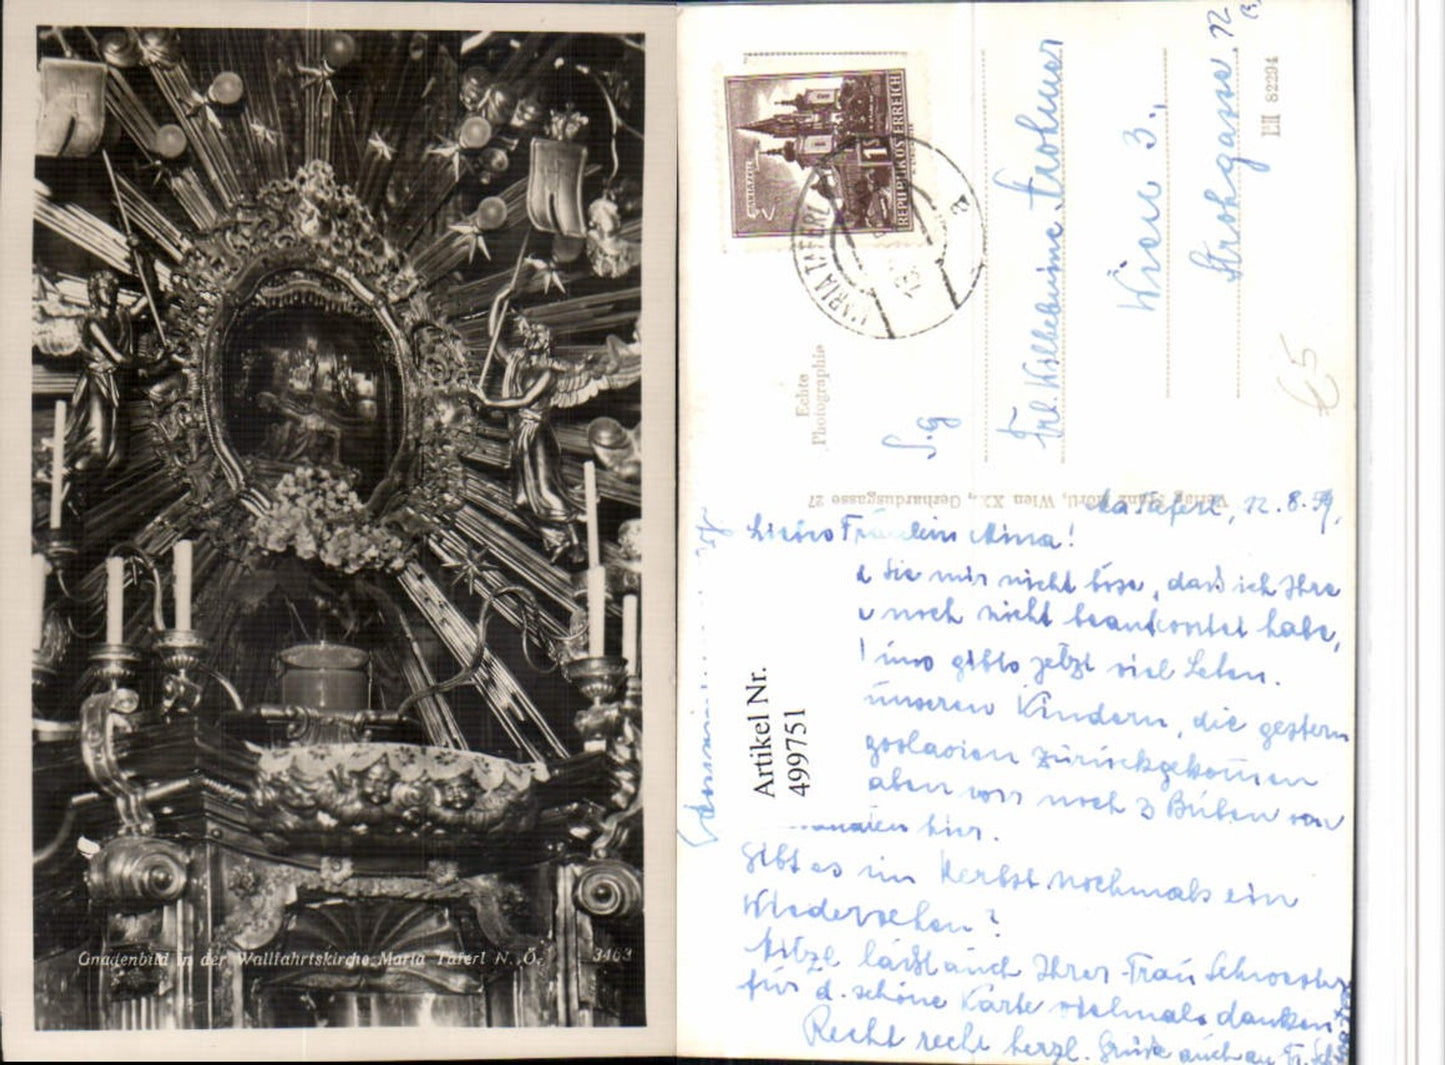 Gnadenbild in der Wallfahrtskirche Maria Taferl N. Ö. 3463
MARIAZELL
1 S
REPUBLIK ÖSTERREICH
MARIA TAFERL
a
Echte
Photographie
S.g
Frl. Wilhelmine Strohmer
Wien 3.,
Strohgasse
L II 82294
€5
Wien XX., Gerhardusgasse 27
Artikel Nr.
499751
Ma Taferl, 12.8.59,
Liebes Fräulein Mina!
Sie mir nicht böse, daß ich Ihre
noch nicht beantwortet habe,
uns gibts jetzt viel Leben.
unseren Kindern, die gestern
zurückgekommen
aber wir noch 3 Buben von
hier.
Gibt es im Herbst nochmals ein
Wiedersehen?
läßt auch Ihrer Frau Schwester
für d. schöne Karte vielmals danken
Recht recht herzl. Grüße auch an Fr.